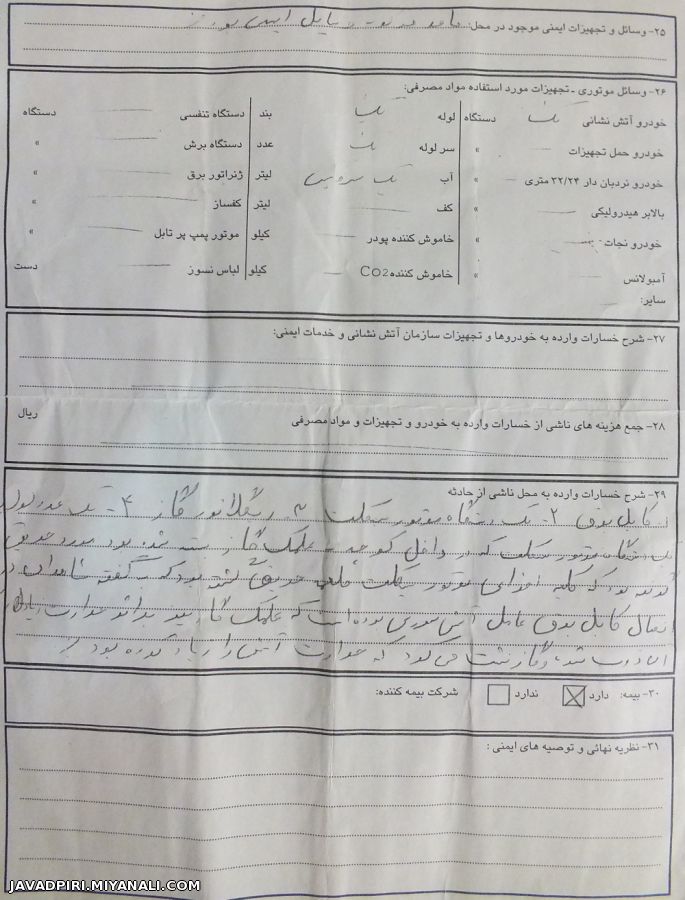 ۲۵- وسائل و تجهیزات ایمنی موجود در محل: وسایل ایمنی
۲۶- وسائل موتوری - تجهیزات مورد استفاده مواد مصرفی:
خودرو آتش نشانی یک دستگاه لوله یک بند دستگاه تنفسی دستگاه
خودرو حمل تجهیزات » سر لوله یک عدد دستگاه برش »
خودرو نردبان دار ۳۲/۲۴ متری » آب یک سرویس لیتر ژنراتور برق »
بالابر هیدرولیکی » کف لیتر کفساز »
خودرو نجات » خاموش کننده پودر کیلو موتور پمپ پر تابل »
آمبولانس » خاموش کننده CO2 کیلو لباس نسوز دست
سایر:
۲۷- شرح خسارات وارده به خودروها و تجهیزات سازمان آتش نشانی و خدمات ایمنی:
۲۸- جمع هزینه های ناشی از خسارات وارده به خودرو و تجهیزات و مواد مصرفی ریال
۲۹- شرح خسارات وارده به محل ناشی از حادثه
۱- کابل برق ۲- یک دستگاه موتور سیکلت ۳- رگلاتور گاز ۴- یک عدد
یک دستگاه موتور سیکلت که در داخل کوچه به علمک گاز بسته شده بود مورد حریق
بود که کلیه اجزای موتور سیکلت حریق شده بود که به گفته شاهدان
اتصال کابل برق عامل آتش سوزی بوده است که علمک گاز نیز بر اثر حرارت زیاد
شد و گاز نشت می کرد که حرارت آتش را زیاد کرده بود
۳۰- بیمه: دارد ندارد شرکت بیمه کننده:
۳۱- نظریه نهائی و توصیه های ایمنی :
JAVADPIRI.MIYANALI.COM